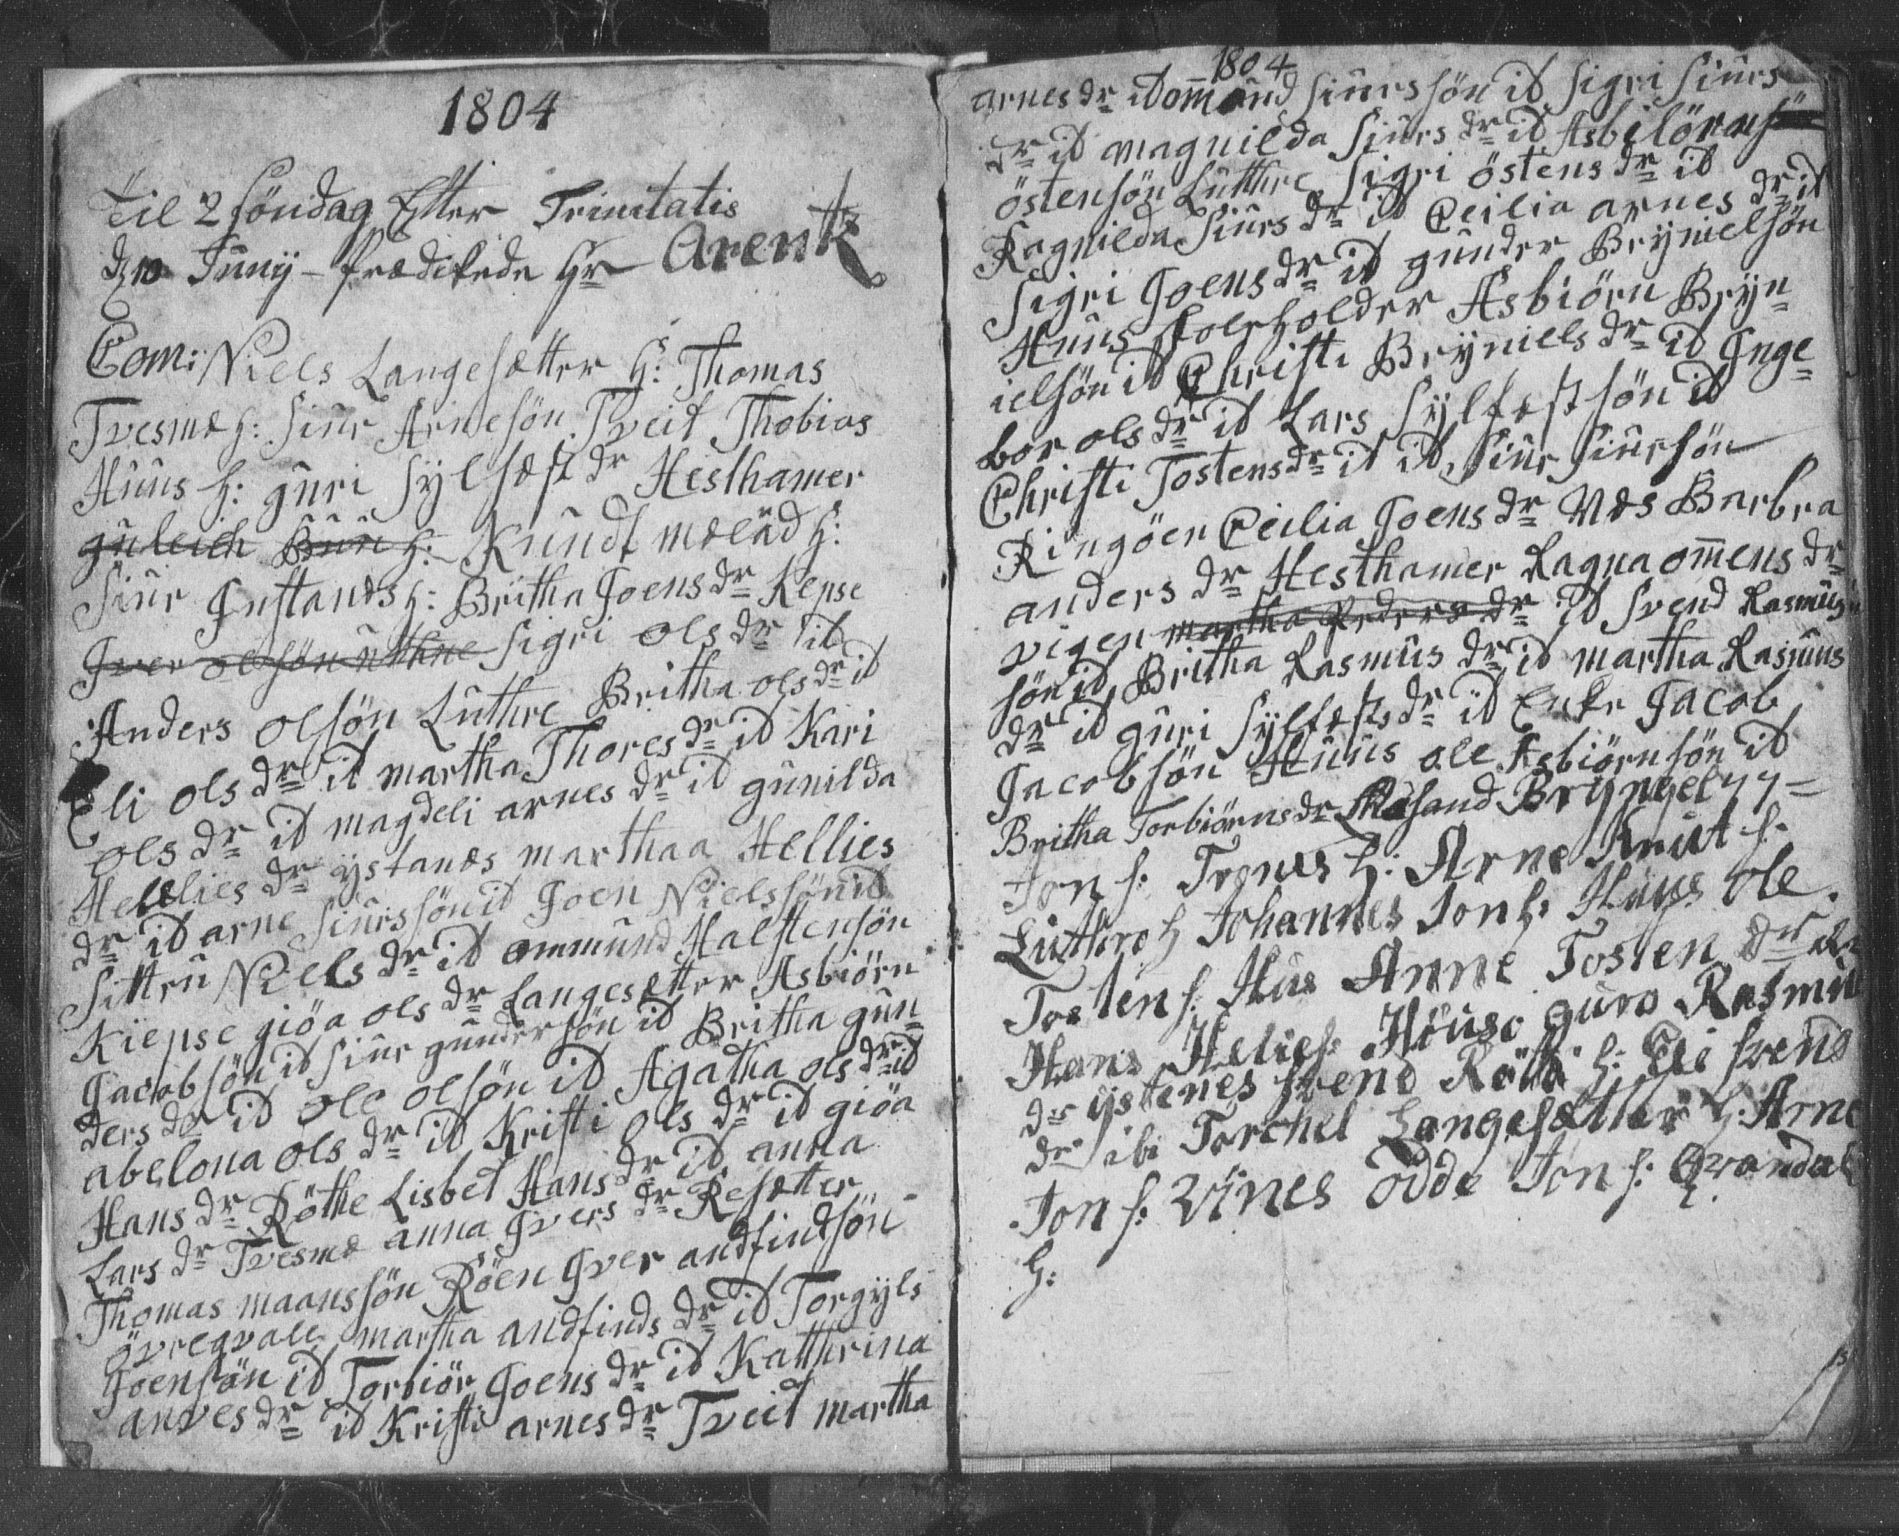 1804
Til 2 Söndag Efter Trinitatis
d 10 Junij - Prædikede Hr Arenk
Com: Niels Langesætter h: Thomas
Tvesme h: Siur Arnesön Tveit Thobias
Huus h: guri Sylfæst dr Hesthamer
guleich Buu h: Knudt mælad h:
Siur Instands h: Britha Joens dr Kepse
Iver olsön uthne Sigri ols dr it
Anders olsön Luthre Britha ols dr it
Eli ols dr it martha Thores dr it Kari
ols dr it magdeli arnes dr it gunilda
Hellies dr ystanes marthaa Hellies
dr it arne Siurssön it Joen Nielssön it
Sittru Niels dr it ommund Halstensön
Kiepse giöa ols dr Langesetter Asbiörn
Jacobsön it Siur gundersön it Britha gun-
ders dr it ole olsön it Agatha ols dr it
abelona ols dr it Kristi ols dr it giöa
Hans dr Röthe Lisbet Hans dr it anna
Lars dr Tvesme anna Ivers dr Resætter
Thomas maanssön Röen Iver andfindsön
övreqvale martha andfinds dr it Torgyls
Joensön it Torbiör Joens dr it Kathrina
anves dr it Kristi arnes dr Tveit martha
1804
arnes dr it ommund Siurssön it Sigri Siurs
dr it magnilda Siurs dr it Asbiörn
östensön Luthre Sigri östens dr it
Ragnilda Siurs dr it Ceilia arnes dr it
Sigri Joens dr it gunder Brynielsön
Huus Skoleholder Asbiörn Bryn-
ielsön it Christi Bryniels dr it Inge-
bor ols dr it Lars Sylfæstsön it
Christi Tostens dr it it Siur Siursön
Ringöen Ceilia Joens dr Næs Barbra
anders dr Hesthamer Ragna ommens dr
vigen martha Peders dr it Svend Rasmus
sön it Britha Rasmus dr it martha Rasmus
dr it guri Sylfæst dr it Enke Jacob
Jacobsön Huus ole Asbiörnsön it
Britha Torbiörns dr Bryngel
Jon s. Trones h: Arne Knut s.
Luthro h Johannes Jon s. Huus ole
Tosten s. Hus Anne Tosten dr
Hans Helies. Houso guro Rasmu
dr ystenes Svend Röth h: Eli Svend
dr ibi Torchel Langesætter h. Arne
Jon s: Vines Odde Jon s: Qvandal
h: